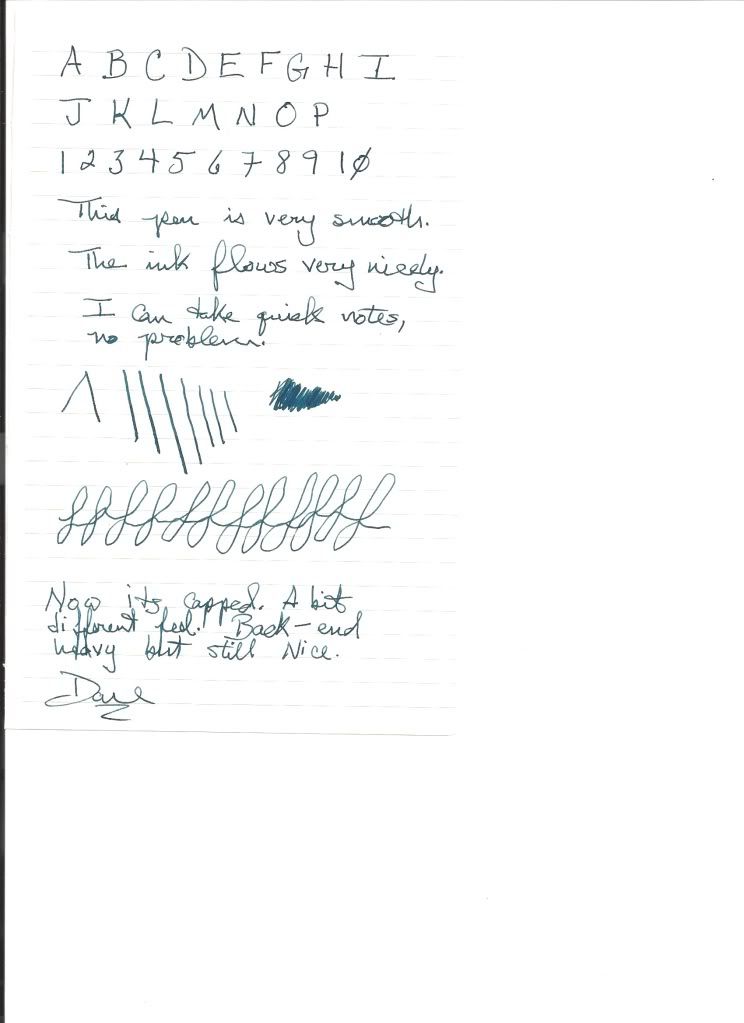 A B C D E F G H I
J K L M N O P
1 2 3 4 5 6 7 8 9 10
This pen is very smooth.
The ink flows very nicely.
I can take quick notes,
no problem.
Now its capped. A bit
different feel. Back-end
heavy but still Nice.
Dave